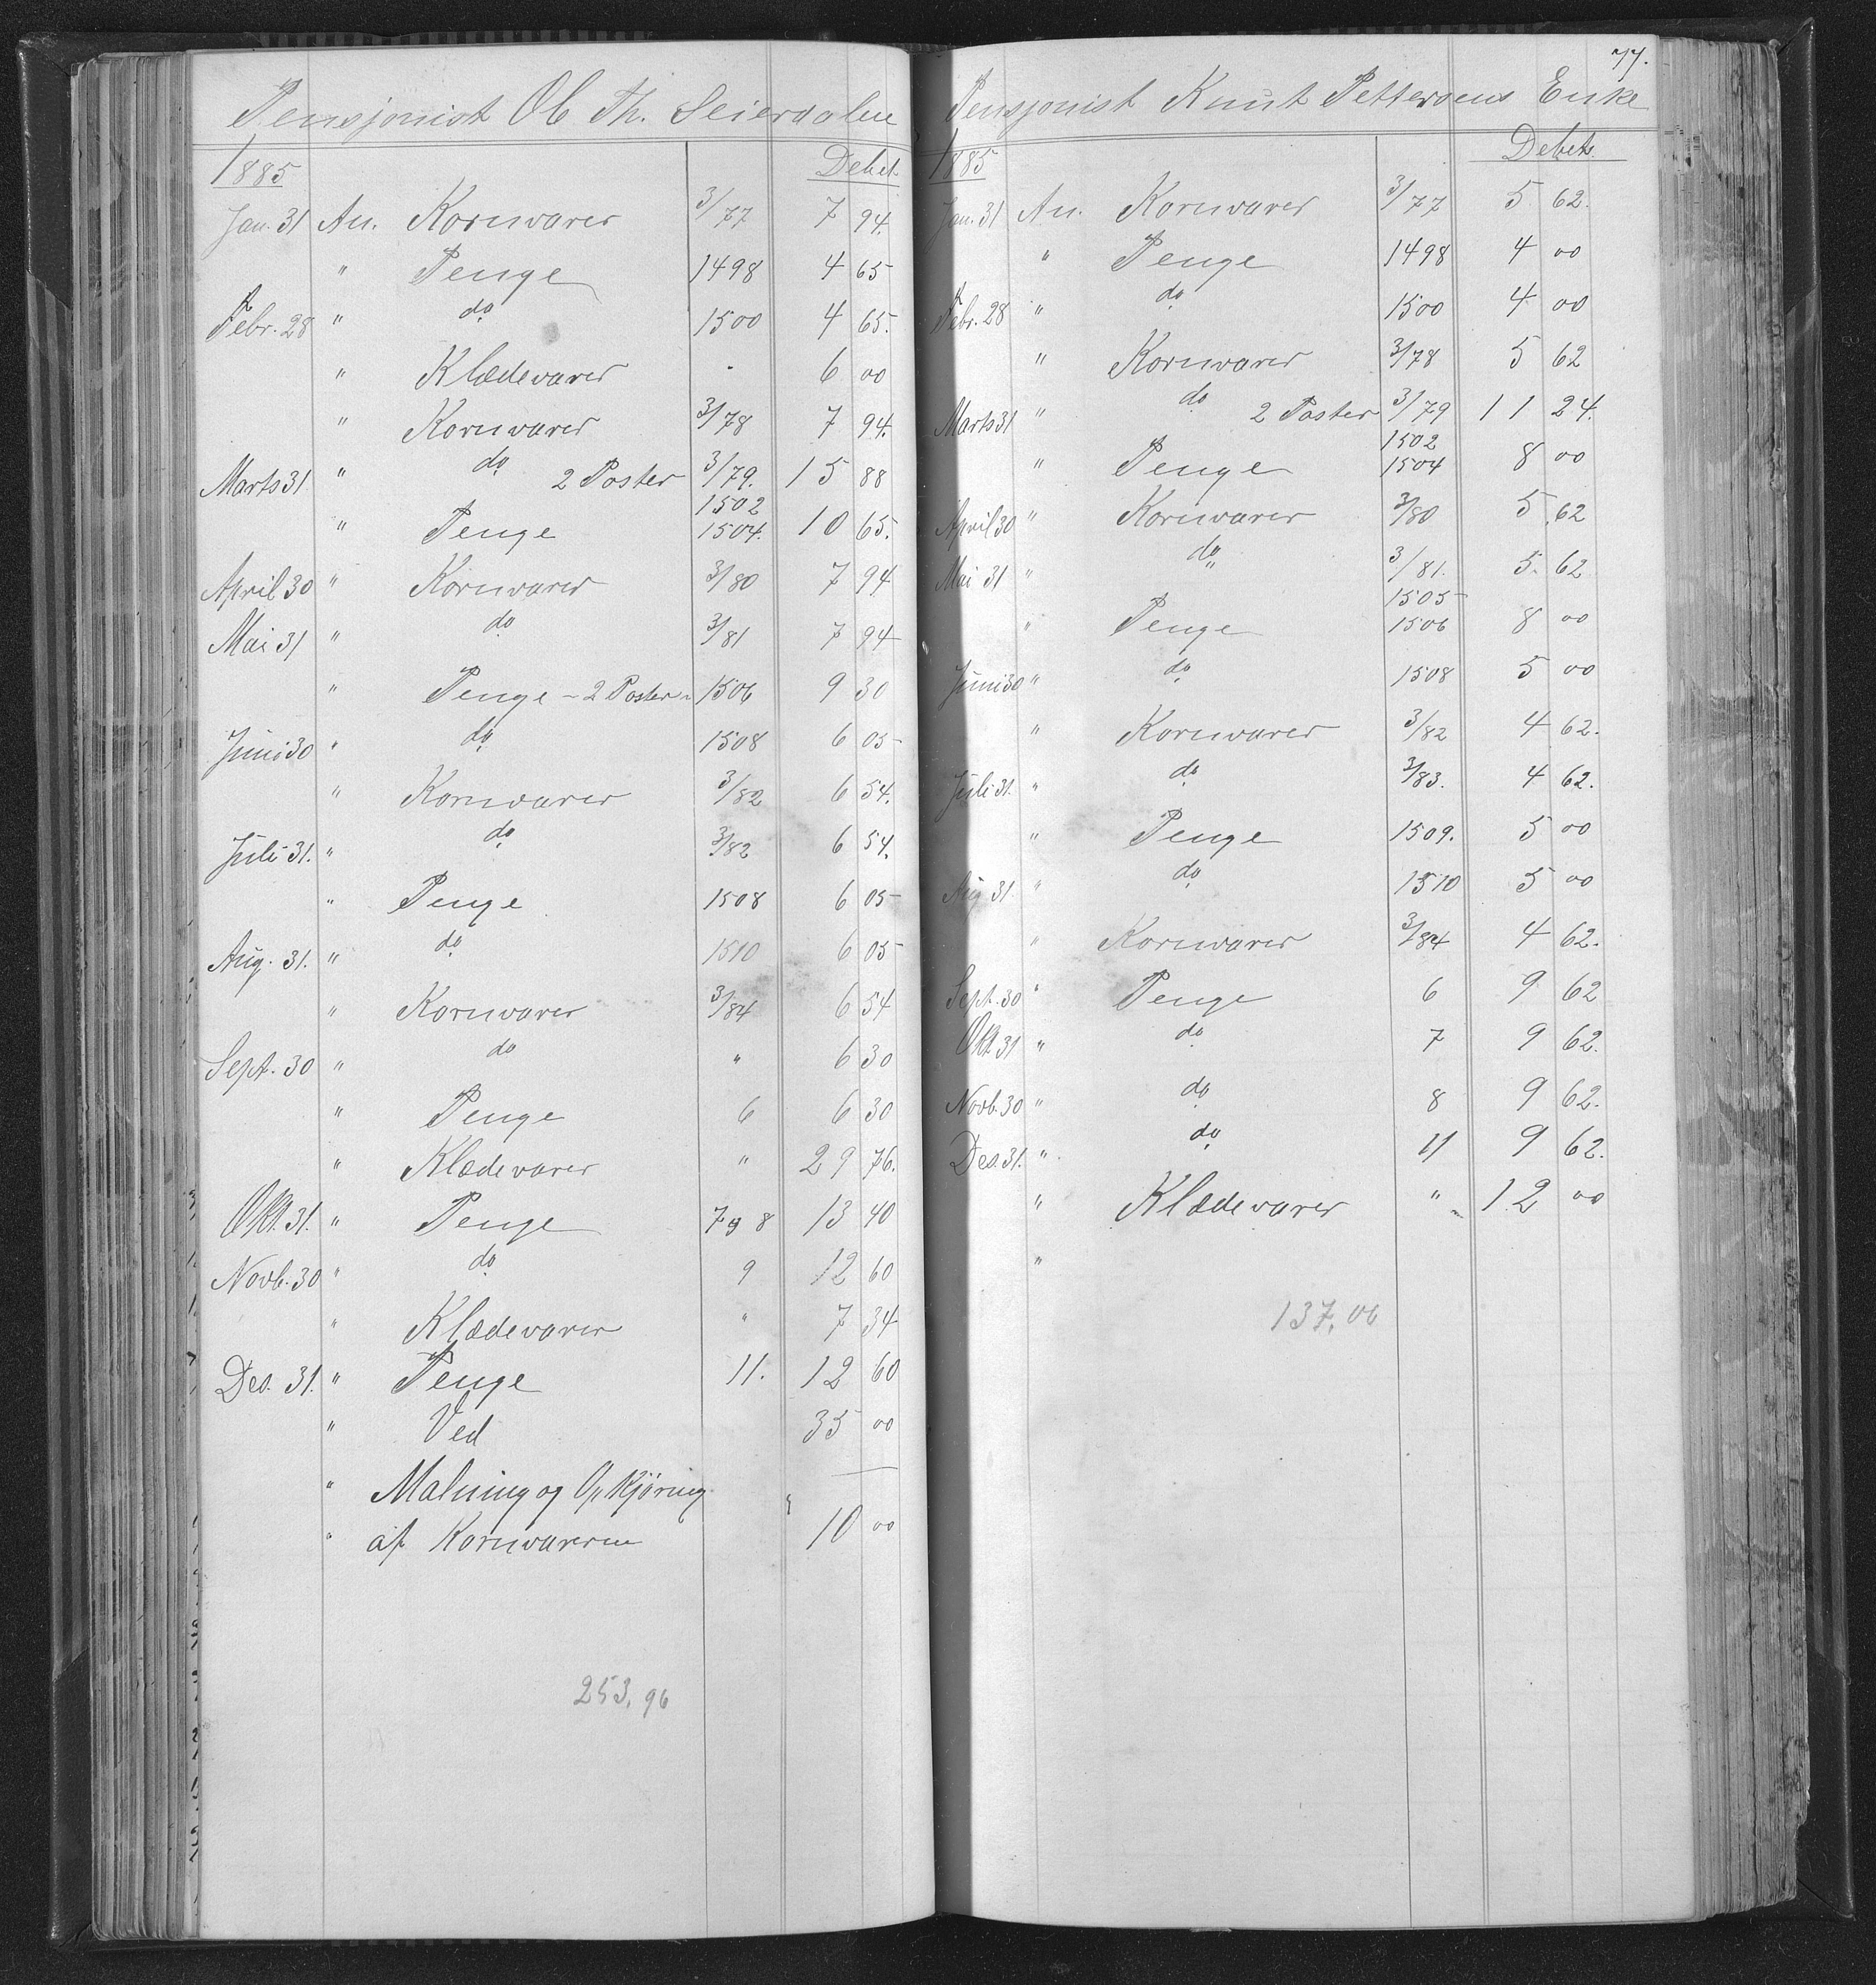 Pensjonist Ob Th. Seierdalen
1885 Debet.
Jan. 31 An. Kornvarer 3/77 7 94.
" Penge 1498 4 65
Febr. 28 " do 1500 4 65.
" Klædevarer - 6 00
" Kornvarer 3/78 7 94.
Marts 31 " do 2 Poster 3/79. 15 88
1502
" Penge 1504. 10 65.
April 30 " Kornvarer 3/80 7 94
Mai 31 " do 3/81 7 94
" Penge - 2 Poster - 1506 9 30
Juni 30 " do 1508 6 05
" Kornvarer 3/82 6 54.
Juli 31. " do 3/82 6 54.
" Penge 1508 6 05
Aug. 31. " do 1510 6 05
" Kornvarer 3/84 6 54
Sept. 30 " do " 6 30
" Penge 6 6 30
" Klædevarer " 29 76.
Okt. 31. " Penge 7 og 8 13 40
Novb. 30 " do 9 12 60
" Klædevarer " 7 34
Des. 31. " Penge 11. 12 60
" Ved 35 00
" Malning og Opkjøring
" af Kornvarerne 10 00
253,96
77.
Pensjonist Knut Pettersens Enke
1885 Debet.
Jan. 31 An. Kornvarer 3/77 5 62.
" Penge 1498 4 00
Febr. 28 " do 1500 4 00
" Kornvarer 3/78 5 62
Marts 31 " do 2 Poster 3/79 11 24.
1502
" Penge 1504 8 00
April 30 " Kornvarer 3/80 5 62
Mai 31 " do 3/81. 5 62
1505
" Penge 1506 8 00
Juni 30 " do 1508 5 00
" Kornvarer 3/82 4 62.
Juli 31. " do 3/83. 4 62.
" Penge 1509. 5 00
Aug 31. " do 1510 5 00
" Kornvarer 3/84 4 62.
Sept. 30 " Penge 6 9 62
Okt. 31 " do 7 9 62.
Novb. 30 " do 8 9 62.
Des. 31. " do 11 9 62.
" Klædevarer " 12 00
"
137,06